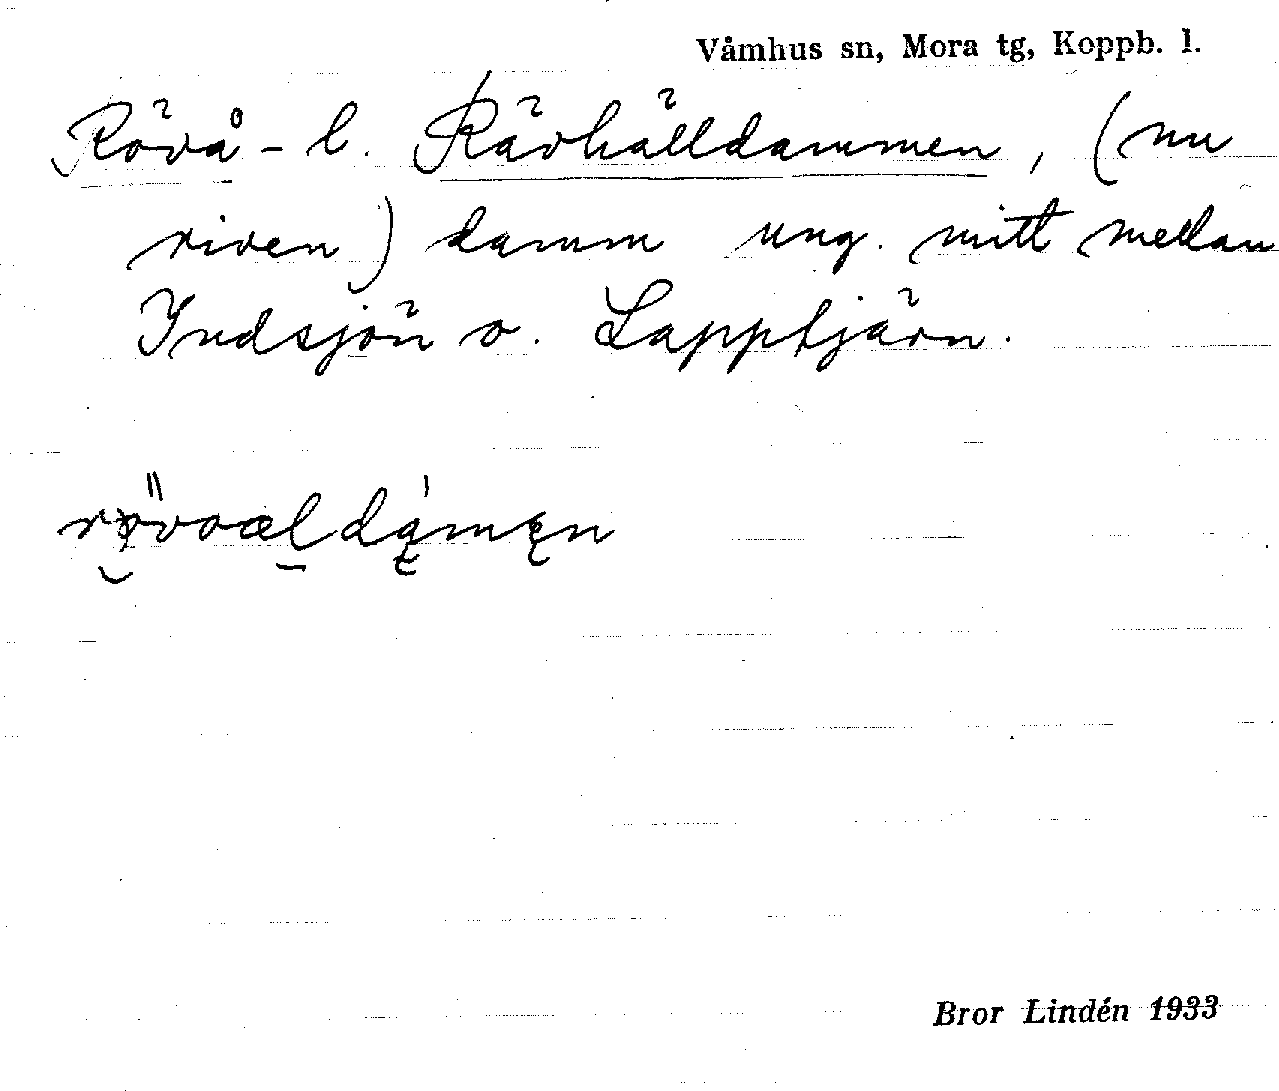 Våmhus sn, Mora tg, Koppb. l.
Rövå- l. Rävhälldammen, (nu
riven) damm ung. mitt mellan
Indsjön o. Lapptjärn.
Bror Lindén 1933